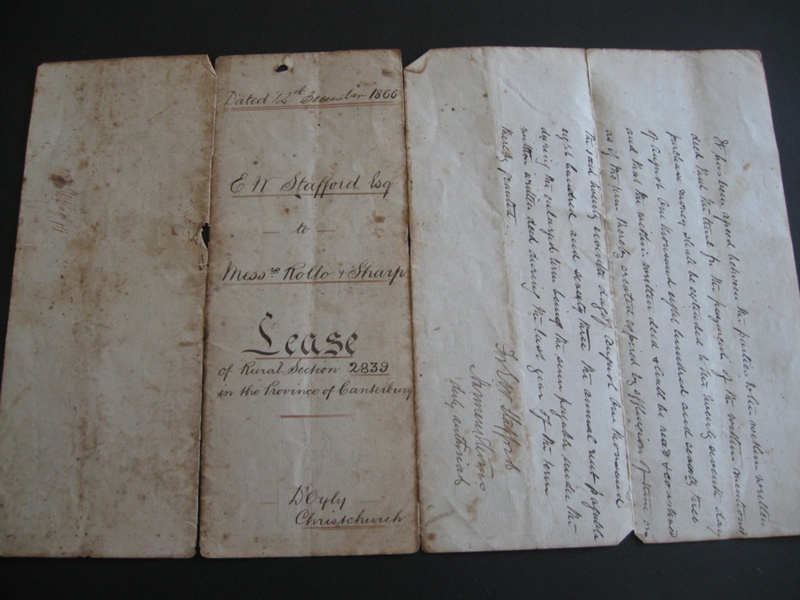 Dated 12th December 1866
E W Stafford Esq
to
Messrs Rollo & Sharp
Lease
of Rural Section 2839
in the Province of Canterbury
D'Oyly
Christchurch
It has been agreed between the parties to the within written
deed that the time for the payment of the within mentioned
purchase money shall be extended to the twenty seventh day
of August One thousand eight hundred and seventy three
and that the within written deed shall be read & construed
as if the term thereby created expired by effluxion of time on
the said twenty seventh day of August One thousand
eight hundred and seventy three the annual rent payable
during the enlarged term being the sum payable under the
within written deed during the last year of the term
thereby granted.
For E W Stafford
duly authorised